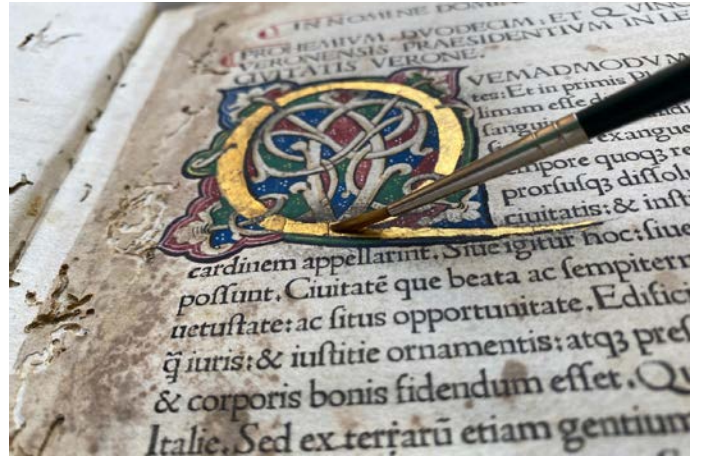 IN NOMINE DOMINI
PROHEMIVM DVODECIM: ET Q VINQ
VERONENSIS PRAESIDENTIVM IN LE
CIVITATIS VERONE.
QVEMADMODVM
tes: Et in primis
limam eſſe
ſangui exangue
tempore quoqꝫ re
prorſuſqꝫ diſſolu
ciuitatis: & inſti
cardinem appellarint. Siue igitur hoc: ſiue
poſſunt. Ciuitatē que beata ac ſempitern
uetuſtate: ac ſitus opportunitate. Edifici
q̃ iuris: & iuſtitie ornamentis: atqꝫ preſ
& corporis bonis fidendum eſſet. Qu
Italie. Sed ex terrarū etiam gentium